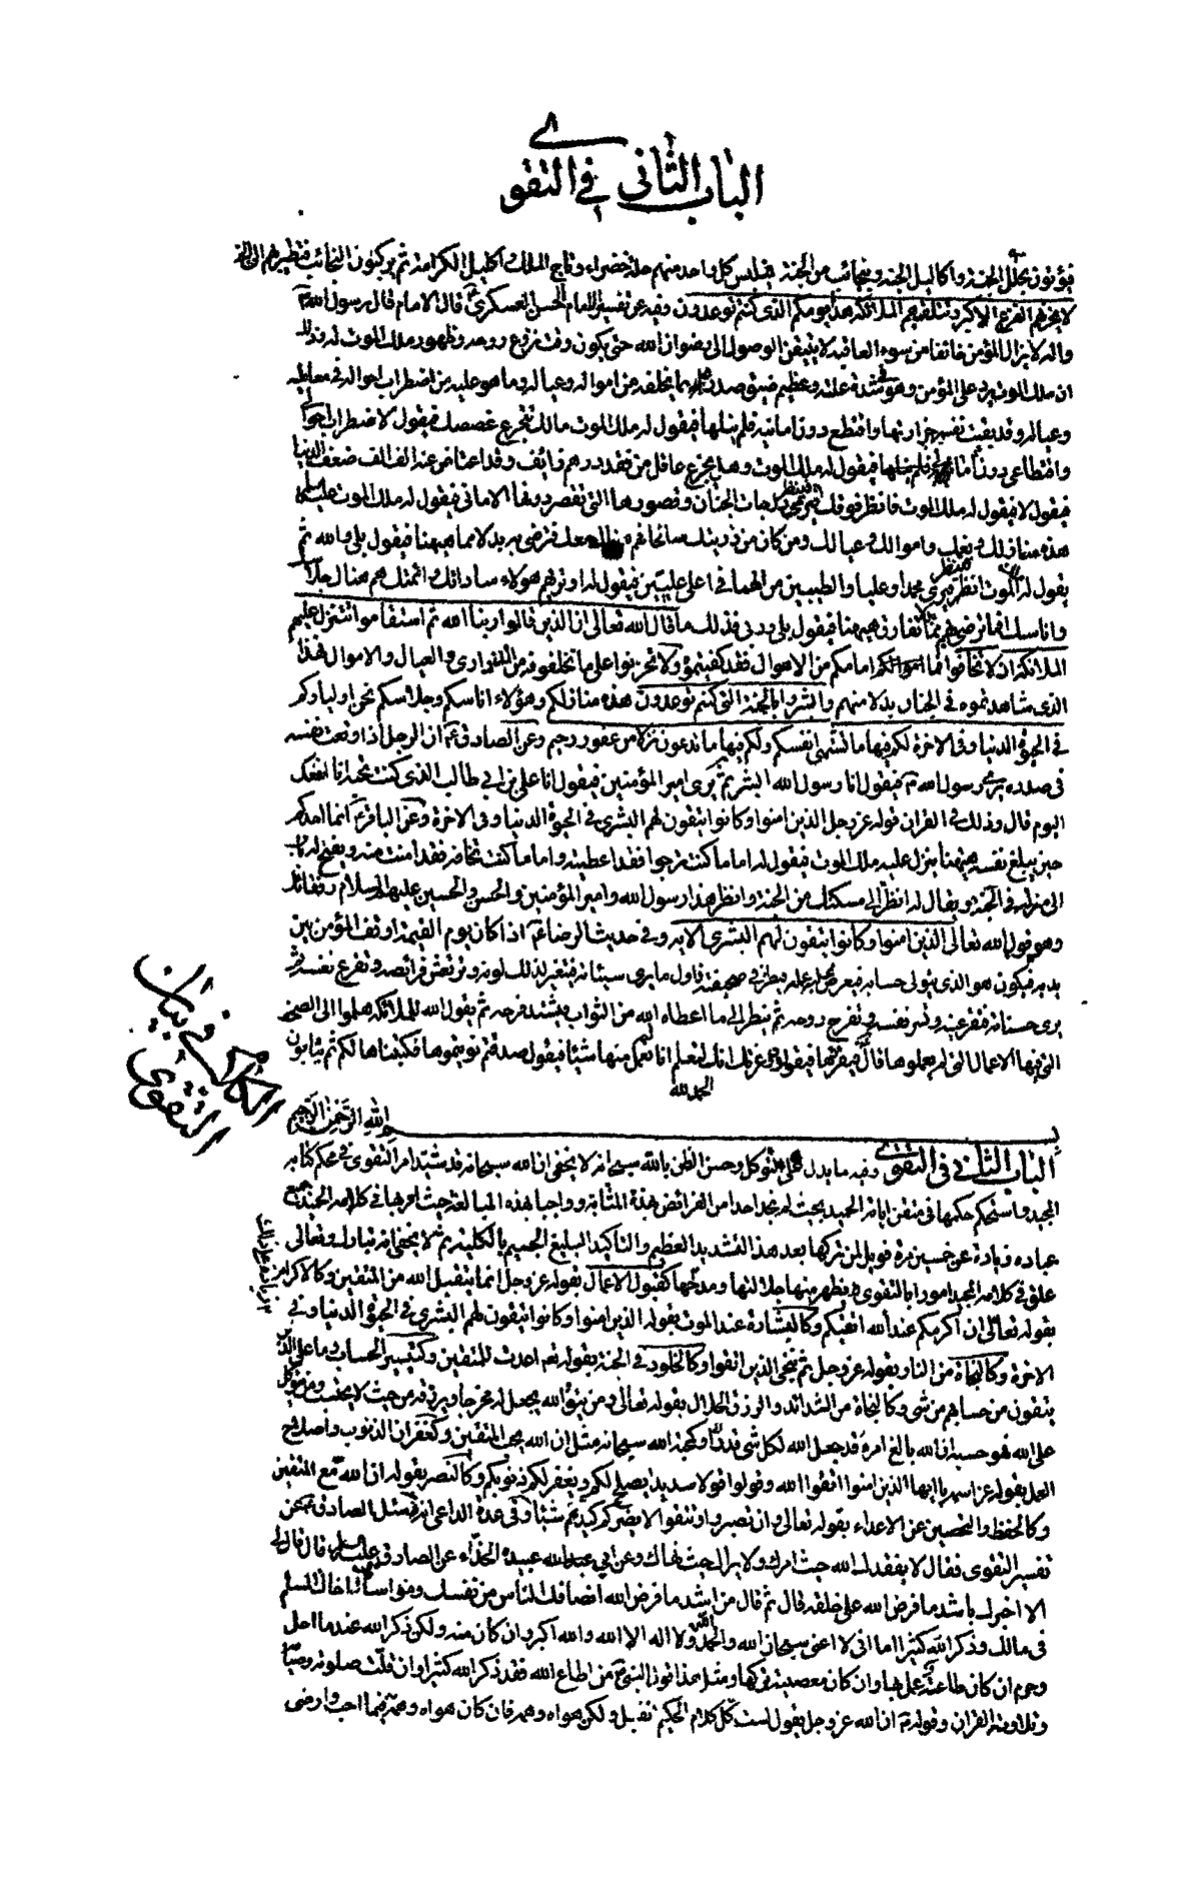 الباب الثاني في التقوى
فيؤتون بحلل الجنة واكاليل الجنة ونجائب من الجنة فيلبس كل واحد منهم حلة خضراء وتاج الملك واكليل الكرامة ثم يركبون النجائب فتطير بهم الى
لا يحزنهم الفزع الاكبر وتتلقيهم الملائكة هذا يومكم الذي كنتم توعدون وفيه عن تفسير الامام الحسن العسكري قال الامام قال رسول الله
واله لا يزال المؤمن خائفا من سوء العاقبة لا يتيقن الوصول الى رضوان الله حتى يكون وقت نزوع روحه وظهور ملك الموت له وذلك
ان ملك الموت يرد على المؤمن وهو في شدة علته وعظيم ضيق صدره بما يخلفه من امواله وعياله وما هو عليه من اضطراب احواله في معامليه
وعياله وقد بقيت نفسه حزازتها وانقطع دون امانيه فلم ينلها فيقول له ملك الموت مالك تتجرع غصصك فيقول لاضطراب احوالي
وانقطاعي دون فيقول له ملك الموت وهل يجزع عاقل من فقد درهم زائف وقد اعتاض عنه الف الف ضعف الدنيا
فيقول لا فيقول له ملك الموت فانظر فوقك فينظر فيرى درجات الجنان وقصورها التي تقصر دونها الاماني فيقول له ملك الموت
هذه منازلك ونعمك واموالك وعيالك ومن كان من ذريتك صالحا فهم هنالك معك فترضى به بدلا مما هيهنا فيقول بلى والله ثم
يقول له ملك الموت انظر فينظر فيرى محمدا وعليا والطيبين من الهما في اعلى عليين فيقول له اوتراهم هؤلاء ساداتك وائمتك هم هنا جلاسك
واناسك افما ترضى بهم مما تفارق هيهنا فيقول بلى وربي فذلك ما قال الله تعالى ان الذين قالوا ربنا الله ثم استقاموا تتنزل عليهم
الملائكة ان لا تخافوا فما امامكم من الاهوال فقد كفيتموه ولا تحزنوا على ما تخلفونه من الذراري والعيال والاموال فهذا
الذي شاهدتموه في الجنان بدلا منهم وابشروا بالجنة التي كنتم توعدون هذه منازلكم وهؤلاء اناسكم وجلاسكم نحن اولياؤكم
في الحيوة الدنيا وفي الاخرة لكم فيها ما تشتهي انفسكم ولكم فيها ما تدعون نزلا من غفور رحيم وعن الصادق ان الرجل اذا وقعت نفسه
في صدره يرى رسول الله فيقول انا رسول الله ابشر ثم يرى امير المؤمنين فيقول انا علي بن ابي طالب الذي كنت تحبه انا انفعك
اليوم قال وذلك في القران قوله عز وجل الذين امنوا وكانوا يتقون لهم البشرى في الحيوة الدنيا وفي الاخرة وعن الباقر انما احدكم
حين يبلغ نفسه هيهنا ينزل عليه ملك الموت فيقول له اما ما كنت ترجوا فقد اعطيته واما ما كنت تخافه فقد امنت منه ويفتح له باب
الى منزله في الجنة ويقال له انظر الى مسكنك من الجنة وانظر هذا رسول الله وامير المؤمنين والحسن والحسين عليهم السلام رفقائك
وهو قول الله تعالى الذين امنوا وكانوا يتقون لهم البشرى الاية وفي حديث الرضا اذا كان يوم القيمة اوقف المؤمن بين
يديه فيكون هو الذي يتولى حسابه فيعرض عليه عمله فينظر في صحيفته فاول ما يرى سيئاته فيتغير لذلك لونه وترتعش فرائصه وتفزع نفسه ثم
يرى حسناته فتقر عينه وتسر نفسه وتفرح روحه ثم ينظر الى ما اعطاه الله من الثواب فيشتد فرحه ثم يقول الله للملائكة هلموا الى الصحف
التي فيها الاعمال التي لم يعملوها قال فيقرؤنها فيقولون وعزتك انك لتعلم انا لم نعمل منها شيئا فيقول صدقتم نويتموها فكتبناها لكم ثم يثابون
الحمد لله
الكلام في بيان
التقوى
بسم الله الرحمن الرحيم
الباب الثاني في التقوى وفيه ما يدل على التوكل وحسن الظن بالله سبحانه لا يخفى ان الله سبحانه قد شيد امر التقوى في محكم كتابه
المجيد واستحكم حكمها في متقن اياته الحميد بحيث لم نجد احدا من الفرائض بهذة المثابة وواجبا بهذه المبالغة حيث امر بها في كلامه الحميد جميع
عباده زيادة عن خمسين مرة فويل لمن تركها بعد هذا التشديد العظيم والتاكيد البليغ الجسيم بالكلية ثم لا يخفى انه تبارك وتعالى
علق في كلامه المجيد امورا بالتقوى فيظهر منها جلالتها ومدحها كقبول الاعمال بقوله عز وجل انما يتقبل الله من المتقين وكالاكرام
بقوله تعالى ان اكرمكم عند الله اتقيكم وكالبشارة عند الموت بقوله الذين امنوا وكانوا يتقون لهم البشرى في الحيوة الدنيا وفي
الاخرة وكالنجاة من النار بقوله عز وجل ثم ننجي الذين اتقوا وكالخلود في الجنة بقوله نعم اعدت للمتقين وكتيسير الحساب وما على الذين
يتقون من حسابهم من شئ وكالنجاة من الشدائد والرزق الحلال بقوله تعالى ومن يتق الله يجعل له مخرجا ويرزقه من حيث لا يحتسب ومن يتوكل
على الله فهو حسبه ان الله بالغ امره قد جعل الله لكل شئ قدرا وكمحبة الله سبحانه مثل ان الله يحب المتقين وكغفران الذنوب واصلاح
العمل بقوله عز اسمه يا ايها الذين امنوا اتقوا الله وقولوا قولا سديدا يصلح لكم ويغفر لكم ذنوبكم وكالنصر بقوله ان الله مع المتقين
وكالحفظ والتحصين عن الاعداء بقوله تعالى وان تصبروا وتتقوا لا يضركم كيدهم شيئا وفي عدة الداعي انه سئل الصادق عن
تفسير التقوى فقال لا يفقدك الله حيث امرك ولا يراك حيث نهاك وعن ابي عبيدة الحذاء عن الصادق قال قال لي
الا اخبرك باشد ما فرض الله على خلقه قال ثم قال من اشد ما فرض الله انصافك الناس من نفسك ومواساتك اخاك المسلم
في مالك وذكر الله كثيرا اما اني لا اعني سبحان الله والحمد لله ولا اله الا الله والله اكبر وان كان منه ولكن ذكر الله عند ما احل
وحرم ان كان طاعة عمل بها وان كان معصية تركها ومثل هذا قول النبي من اطاع الله فقد ذكر الله كثيرا وان قلت صلوته وصيامه
وتلاوته القران وقوله ان الله عز وجل يقول لست كل كلام الحكيم تقبل ولكن هواه وهمه فان كان هواه وهمه فيما احب وارضى